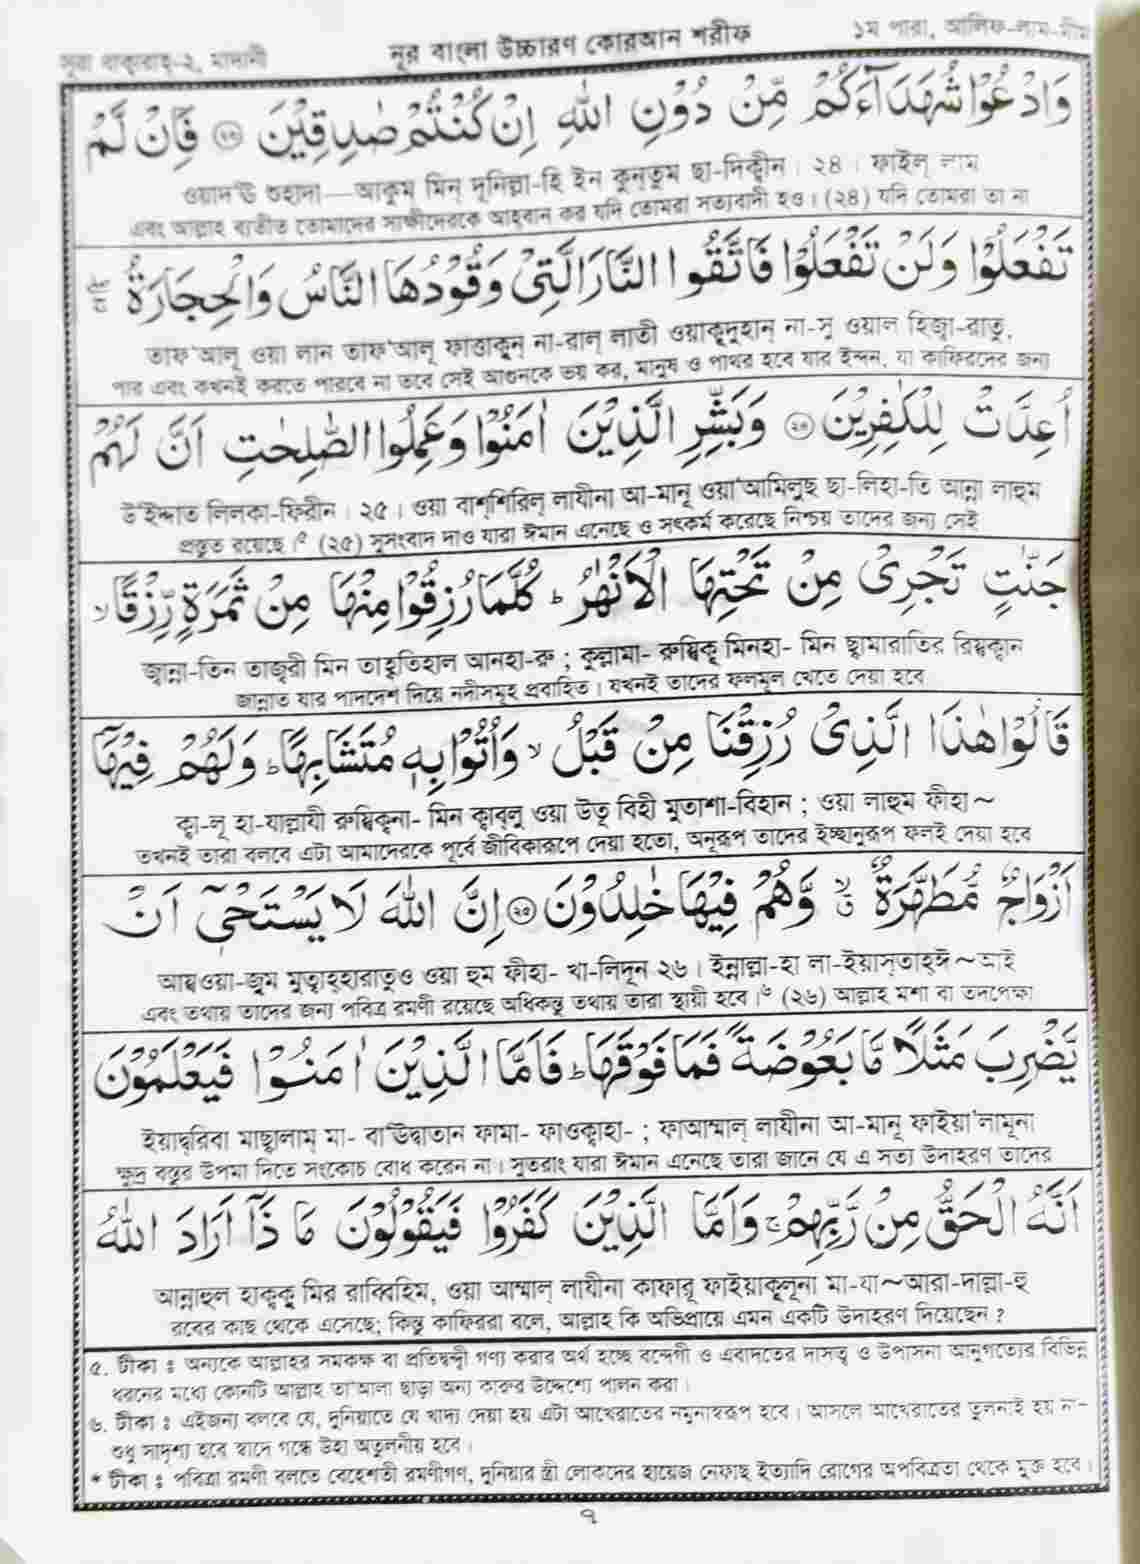 সূরা বাক্বারাহ্-২, মাদানী নূর বাংলা উচ্চারণ কোরআন শরীফ ১ম পারা, আলিফ-লাম-মীম
وَادْعُوْا شُهَدَآءَكُمْ مِّنْ دُوْنِ اللّٰهِ اِنْ كُنْتُمْ صٰدِقِيْنَ ۝٢٣ فَاِنْ لَّمْ
ওয়াদ‘ঊ শুহাদা—আকুম্ মিন্ দূনিল্লা-হি ইন কুন্‌তুম ছা-দিক্বীন। ২৪। ফাইল্ লাম
এবং আল্লাহ ব্যতীত তোমাদের সাক্ষীদেরকে আহবান কর যদি তোমরা সত্যবাদী হও। (২৪) যদি তোমরা তা না
تَفْعَلُوْا وَلَنْ تَفْعَلُوْا فَاتَّقُوا النَّارَ الَّتِىْ وَقُوْدُهَا النَّاسُ وَالْحِجَارَةُ
তাফ‘আলূ ওয়া লান তাফ‘আলূ ফাত্তাকুন্ না-রাল্ লাতী ওয়াকূদুহান্ না-সু ওয়াল হিজ্বা-রাতু,
পার এবং কখনই করতে পারবে না তবে সেই আগুনকে ভয় কর, মানুষ ও পাথর হবে যার ইন্দন, যা কাফিরদের জন্য
اُعِدَّتْ لِلْكٰفِرِيْنَ ۝٢٤ وَبَشِّرِ الَّذِيْنَ اٰمَنُوْا وَعَمِلُوا الصّٰلِحٰتِ اَنَّ لَهُمْ
উ‘ইদ্দাত লিলকা-ফিরীন। ২৫। ওয়া বাশ্‌শিরিল্ লাযীনা আ-মানূ ওয়া‘আমিলুছ ছা-লিহা-তি আন্না লাহুম
প্রস্তুত রয়েছে।৫ (২৫) সুসংবাদ দাও যারা ঈমান এনেছে ও সৎকর্ম করেছে নিশ্চয় তাদের জন্য সেই
جَنّٰتٍ تَجْرِىْ مِنْ تَحْتِهَا الْاَنْهٰرُ ؕ كُلَّمَا رُزِقُوْا مِنْهَا مِنْ ثَمَرَةٍ رِّزْقًا ۙ
জ্বান্না-তিন তাজ্বরী মিন তাহ্বতিহাল আনহা-রু ; কুল্লামা- রুয্বিকূ মিনহা- মিন ছ্বামারাতির রিয্বক্বান
জান্নাত যার পাদদেশ দিয়ে নদীসমূহ প্রবাহিত। যখনই তাদের ফলমূল খেতে দেয়া হবে
قَالُوْا هٰذَا الَّذِىْ رُزِقْنَا مِنْ قَبْلُ ۙ وَاُتُوْا بِهٖ مُتَشَابِهًا ؕ وَلَهُمْ فِيْهَآ
ক্বা-লূ হা-যাল্লাযী রুয্বিকনা- মিন ক্বাব্‌লু ওয়া উতূ বিহী মুতাশা-বিহান ; ওয়া লাহুম ফীহা~
তখনই তারা বলবে এটা আমাদেরকে পূর্বে জীবিকারূপে দেয়া হতো, অনুরূপ তাদের ইচ্ছানুরূপ ফলই দেয়া হবে
اَزْوَاجٌ مُّطَهَّرَةٌ ۙ وَّهُمْ فِيْهَا خٰلِدُوْنَ ۝٢٥ اِنَّ اللّٰهَ لَا يَسْتَحْىٖٓ اَنْ
আয্বওয়া-জুম মুত্বাহ্‌হারাতুও ওয়া হুম ফীহা- খা-লিদূন ২৬। ইন্নাল্লা-হা লা-ইয়াস্‌তাহ্‌ঈ~আই
এবং তথায় তাদের জন্য পবিত্র রমণী রয়েছে অধিকন্তু তথায় তারা স্থায়ী হবে।৬ (২৬) আল্লাহ মশা বা তদপেক্ষা
يَّضْرِبَ مَثَلًا مَّا بَعُوْضَةً فَمَا فَوْقَهَا ؕ فَاَمَّا الَّذِيْنَ اٰمَنُوْا فَيَعْلَمُوْنَ
ইয়াদ্বরিবা মাছ্বালাম্ মা- বা‘ঊদ্বাতান ফামা- ফাওক্বাহা- ; ফাআম্মাল্ লাযীনা আ-মানূ ফাইয়া‘লামূনা
ক্ষুদ্র বস্তুর উপমা দিতে সংকোচ বোধ করেন না। সুতরাং যারা ঈমান এনেছে তারা জানে যে এ সত্য উদাহরণ তাদের
اَنَّهُ الْحَقُّ مِنْ رَّبِّهِمْ ۚ وَاَمَّا الَّذِيْنَ كَفَرُوْا فَيَقُوْلُوْنَ مَا ذَآ اَرَادَ اللّٰهُ
আন্নাহুল হাক্বকু মির রাব্বিহিম, ওয়া আম্মাল্ লাযীনা কাফারূ ফাইয়াকূলূনা মা-যা~আরা-দাল্লা-হু
রবের কাছ থেকে এসেছে; কিন্তু কাফিররা বলে, আল্লাহ কি অভিপ্রায়ে এমন একটি উদাহরণ দিয়েছেন ?
৫. টীকা ঃ অন্যকে আল্লাহর সমকক্ষ বা প্রতিদ্বন্দ্বী গণ্য করার অর্থ হচ্ছে বন্দেগী ও এবাদতের দাসত্ব ও উপাসনা আনুগত্যের বিভিন্ন
ধরনের মধ্যে কোনটি আল্লাহ তা‘আলা ছাড়া অন্য কারুর উদ্দেশ্যে পালন করা।
৬. টীকা ঃ এইজন্য বলবে যে, দুনিয়াতে যে খাদ্য দেয়া হয় এটা আখেরাতের নমুনাস্বরূপ হবে। আসলে আখেরাতের তুলনাই হয় না-
শুধু সাদৃশ্য হবে স্বাদে গন্ধে উহা অতুলনীয় হবে।
* টীকা ঃ পবিত্রা রমণী বলতে বেহেশতী রমণীগণ, দুনিয়ার স্ত্রী লোকদের হায়েজ নেফাছ ইত্যাদি রোগের অপবিত্রতা থেকে মুক্ত হবে।
৭